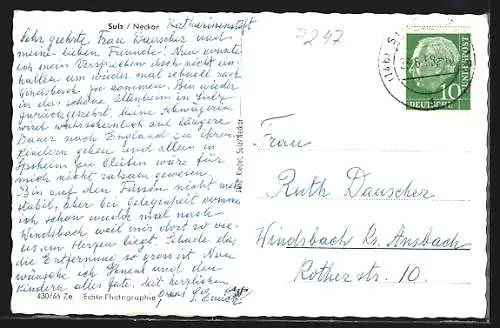 Sulz / Neckar
Katharinenstift
Sehr geehrte Frau Dauscher und
meine lieben Freunde! Nun konnte
ich mein Versprechen doch nicht ein
halten um wieder mal schnell nach
Windsbach zu kommen. Bin wieder
in das schöne Altenheim in Sulz
zurückgekehrt, meine Schwägerin
wird wahrscheinlich auf längere
Dauer nach England zu ihren
Kindern gehen und allein in
Ipsheim zu bleiben wäre für
mich nicht ratsam gewesen.
Bin auf den Füssen nicht mehr
stabil, aber bei Gelegenheit komme
ich schon wieder mal nach
Windsbach weil mir dort so vie-
les am Herzen liegt. Schade dass
die Entfernung so gross ist. Nun
wünsche ich Ihnen und den
Kindern alles Gute, seit herzlichen
gruss
430/66 Ze Echte Photographie
247
10
DEUTSCHE
BUNDESPOST
Frau
Ruth Dauscher
Windsbach Kr. Ansbach
Rother str. 10.